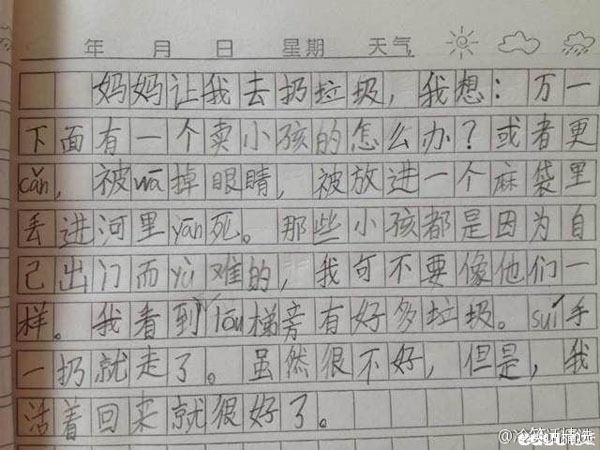 年 月 日 星期 天气
妈妈让我去扔垃圾，我想：万一
下面有一个卖小孩的怎么办？或者更
cǎn，被wā掉眼睛，被放进一个麻袋里
丢进河里yān死。那些小孩都是因为自
己出门而yù难的，我可不要像他们一
样。我看到lóu梯旁有好多垃圾。suí手
一扔就走了。虽然很不好，但是，我
活着回来就很好了。
@冷笑话精选